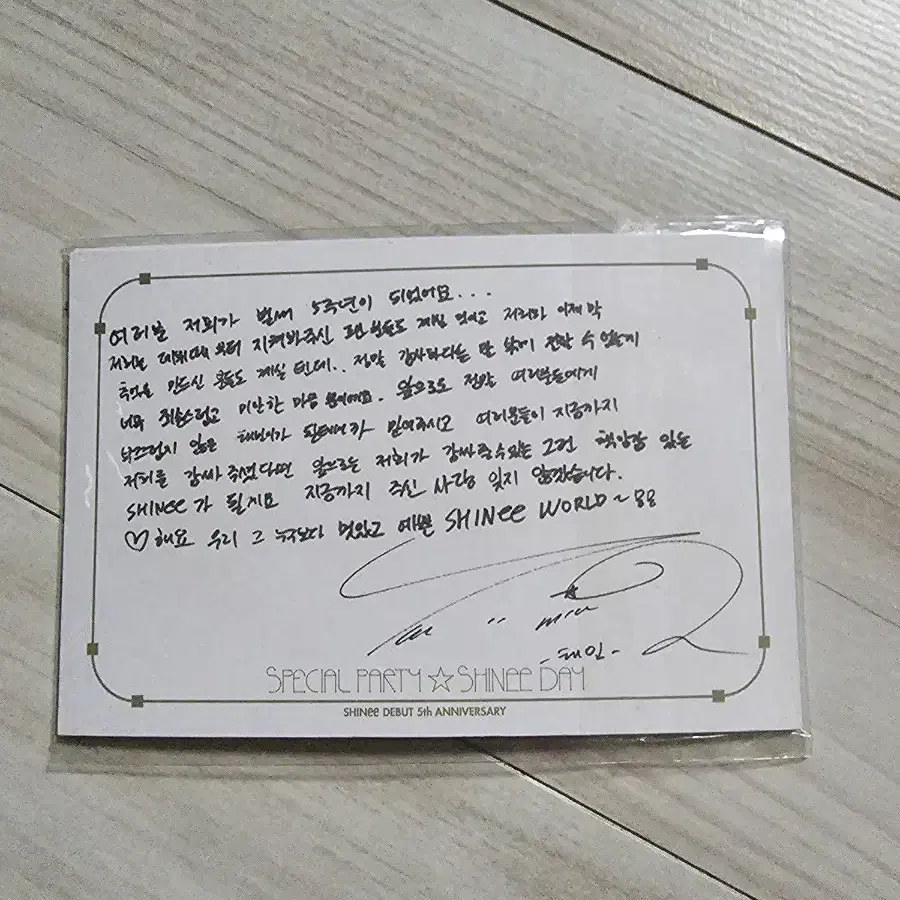 여러분 저희가 벌써 5주년이 되었어요...
저희는 데뷔때 부터 지켜봐주신 팬분들도 계실 것이고 저희와 이제 막
추억을 만드신 분들도 계실 텐데.. 정말 감사하다는 말 밖에 전할 수 없는게
너무 죄송스럽고 미안한 마음 뿐이에요. 앞으로도 정말 여러분들에게
부끄럽지 않은 태민이가 될테니까 믿어주시고 여러분들이 지금까지
저희를 감싸 주셨다면 앞으로는 저희가 감싸줄수있는 그런 책임감 있는
SHINee가 될게요 지금까지 주신 사랑 잊지 않겠습니다.
♡해요 우리 그 누구보다 멋있고 예쁜 SHINee WORLD~ 88
Tae min
-태민-
SPECIAL PARTY ☆ SHINEE DAY
SHINee DEBUT 5th ANNIVERSARY